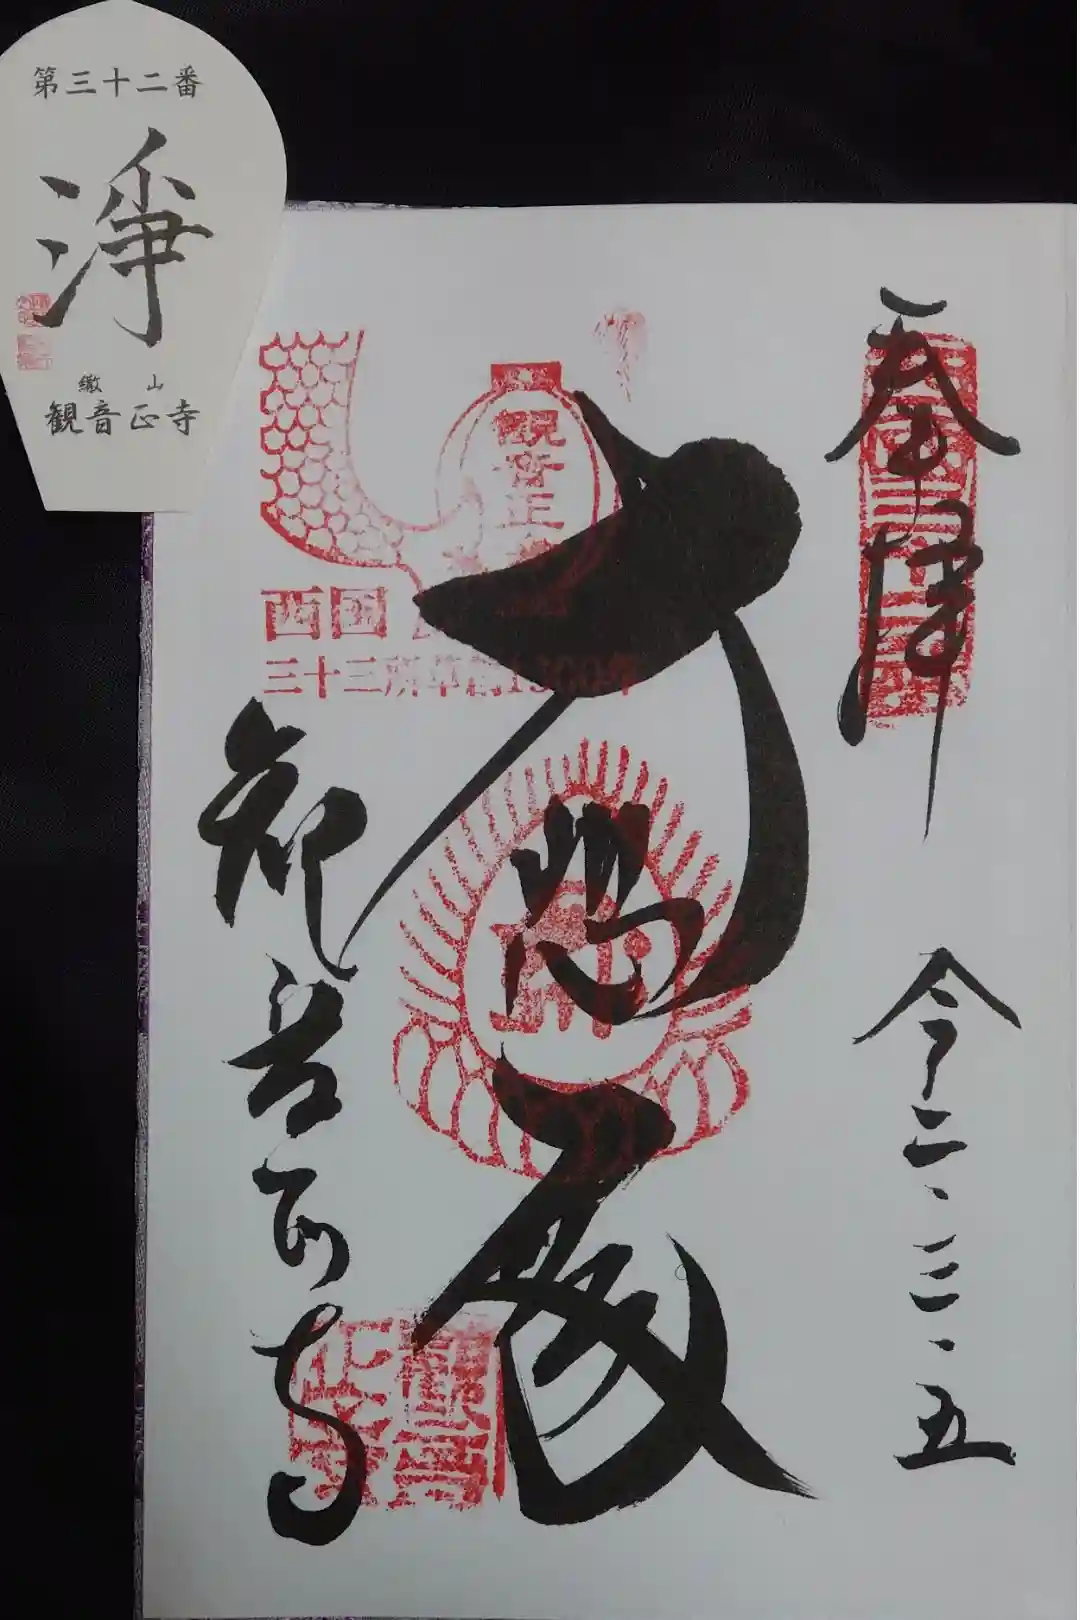 第三十二番
淨
繖山
観音正寺
奉拝
今二・三・五
大悲殿
観音正寺
観音正
西国
三十三所草創1300年
観音
正寺